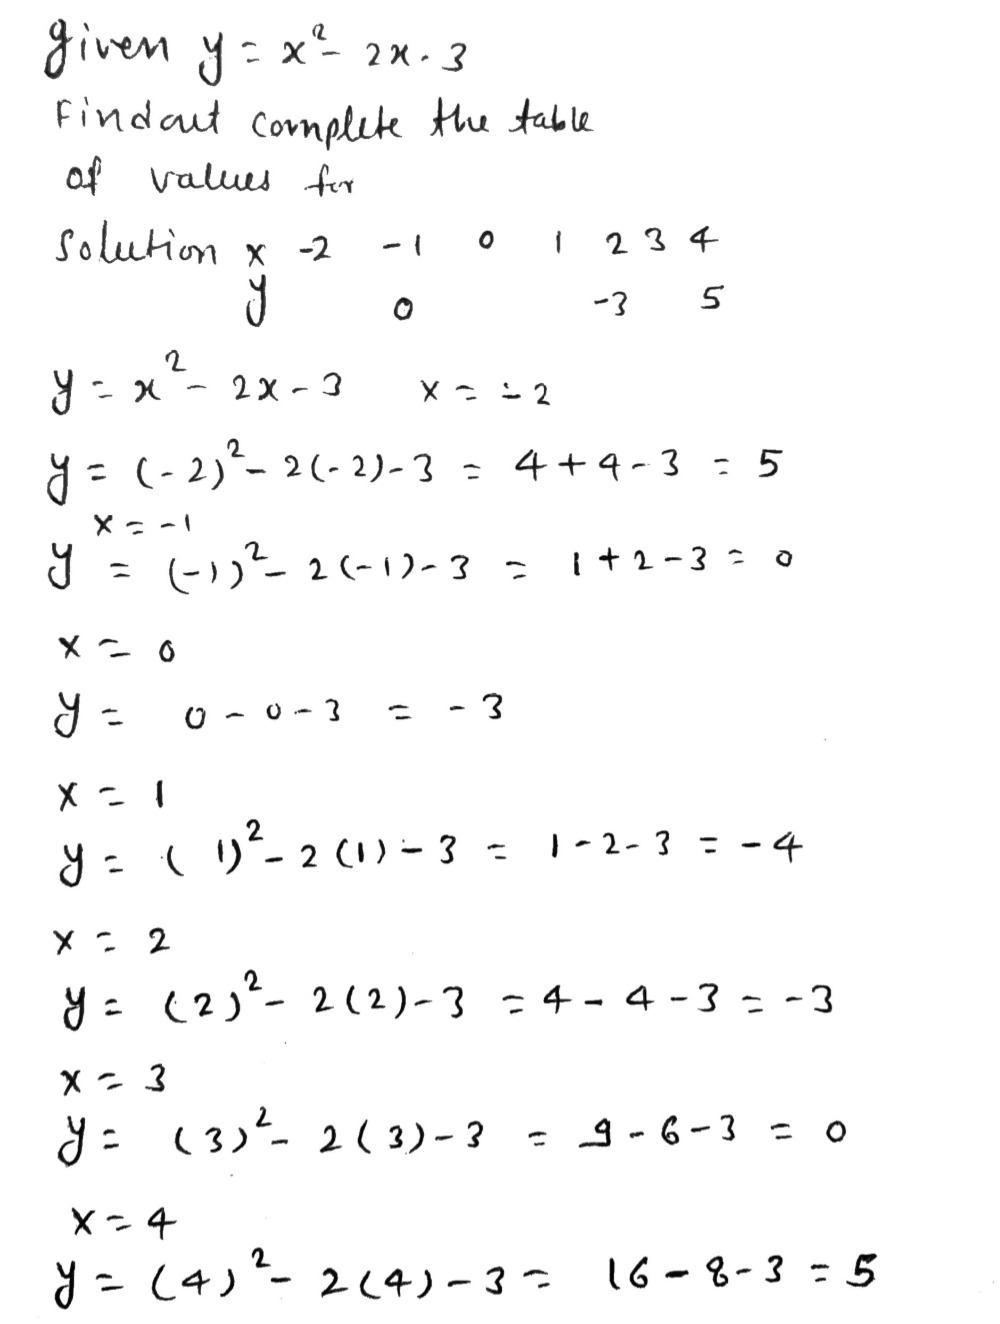 given y = x² - 2x - 3
Findout complete the table
of values for
Solution x -2 -1 0 1 2 3 4
y 0 -3 5
y = x² - 2x - 3 x = -2
y = (-2)² - 2(-2) - 3 = 4 + 4 - 3 = 5
x = -1
y = (-1)² - 2(-1) - 3 = 1 + 2 - 3 = 0
x = 0
y = 0 - 0 - 3 = -3
x = 1
y = (1)² - 2(1) - 3 = 1 - 2 - 3 = -4
x = 2
y = (2)² - 2(2) - 3 = 4 - 4 - 3 = -3
x = 3
y = (3)² - 2(3) - 3 = 9 - 6 - 3 = 0
x = 4
y = (4)² - 2(4) - 3 = 16 - 8 - 3 = 5